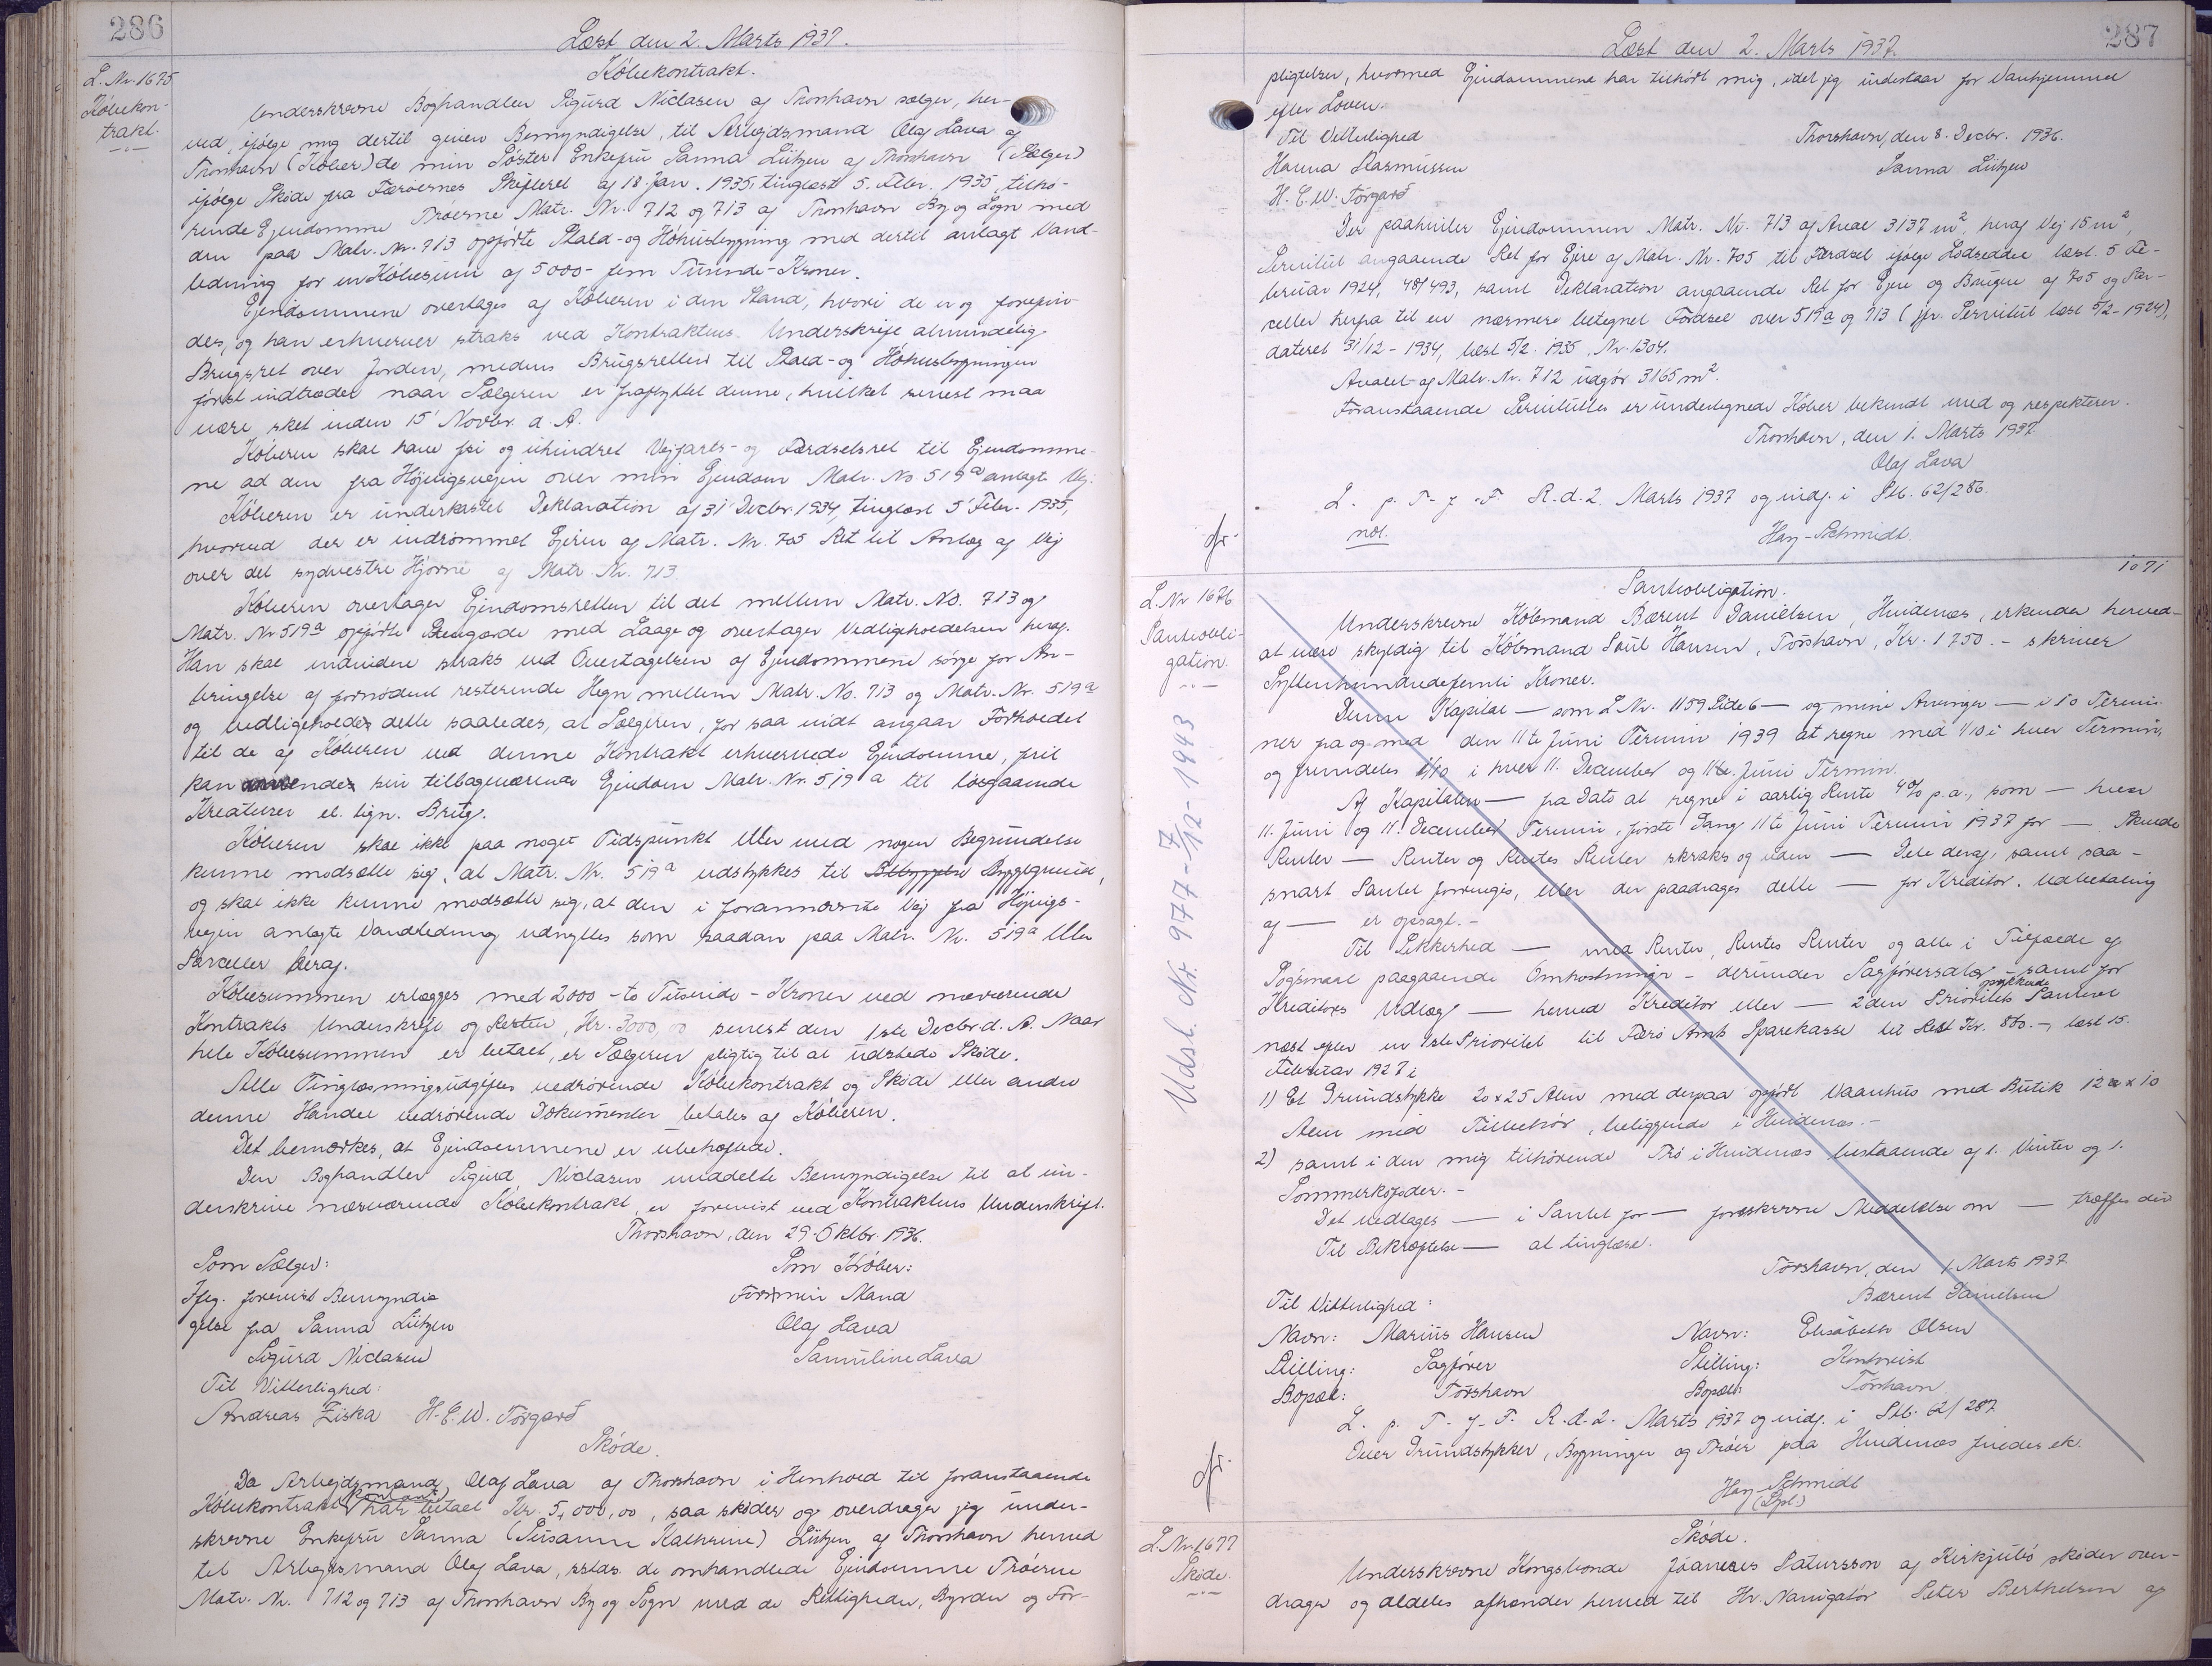 286
Læst den 2. Marts 1937.
L. Nr. 1675
Købekon-
trakt.
Købekontrakt.
Underskrevne Boghandler Sigurd Niclasen af Thorshavn sælger, her-
ved, ifølge mig dertil given Bemyndigelse, til Arbejdsmand Olaf Lava af
Thorshavn (Køber) de min Søster Enkefru Sanna Lützen af Thorshavn (Sælger)
ifølge Skøde fra Færøernes Skifteret af 18. Jan. 1935, tinglæst 5. Febr. 1935, tilhø-
rende Ejendomme Trøerne Matr. Nr. 712 og 713 af Thorshavn By og Sogn med
den paa Matr. Nr. 713 opførte Stald- og Høhusbygning med dertil anlagt Vand-
ledning for en Købesum af 5000 - fem Tusinde - Kroner.
Ejendommene overtages af Køberen i den Stand, hvori de er og forefin-
des, og han erhverver straks ved Kontraktens Underskrift almindelig
Brugsret over Jorden, medens Brugsretten til Stald- og Høhusbygningen
først indtræder naar Sælgeren er fraflyttet denne, hvilket senest maa
være sket inden 15' Novbr. d. A.
Køberen skal have fri og uhindret Vejfarts- og Færdselsret til Ejendomme-
ne ad den fra Højvigsvejen over min Ejendom Matr. No 519a anlagte Vej.
Køberen er underkastet Deklaration af 31' Decbr. 1934, tinglæst 5' Febr. 1935,
hvorved der er indrømmet Ejeren af Matr. Nr. 705 Ret til Anlæg af Vej
over det sydvestre Hjørne af Matr. Nr. 713
Køberen overtager Ejendomsretten til det mellem Matr. No. 713 og
Matr. Nr 519a opførte Stengærde med Laage og overtager Vedligeholdelsen heraf.
Han skal endvidere straks ved Overtagelsen af Ejendommene sørge for An-
bringelse af fornødent resterende Hegn mellem Matr. No. 713 og Matr. Nr. 519a
og vedligeholder dette saaledes, at Sælgeren, for saa vidt angaar Forholdet
til de af Køberen ved denne Kontrakt erhvervede Ejendomme, frit
kan anvende sin tilbageværende Ejendom Matr. Nr. 519a til løsgaaende
Kreaturer el. lign. Brug.
Køberen skal ikke paa noget Tidspunkt eller med nogen Begrundelse
kunne modsætte sig, at Matr. Nr. 519a udstykkes til Bebyggelse Byggegrund,
og skal ikke kunne modsætte sig, at den i forannævnte Vej fra Højvigs-
vejen anlagte Vandledning udnyttes som saadan paa Matr. Nr. 519a eller
Parceller heraf.
Købesummen erlægges med 2000 - to Tusinde - Kroner ved nærværende
Kontrakts Underskrift og Resten, Kr. 3000,00 senest den 1ste Decbr. d. A. Naar
hele Købesummen er betalt, er Sælgeren pligtig til at udstede Skøde.
Alle Tinglæsningsudgifter vedrørende Købekontrakt og Skøde eller andre
denne Handel vedrørende Dokumenter betales af Køberen.
Det bemærkes, at Ejendommene er ubehæftede.
Den Boghandler Sigurd Niclasen meddelte Bemyndigelse til at un-
derskrive nærværende Købekontrakt er forevist ved Kontraktens Underskrift.
Thorshavn, den 29. Oktbr. 1936.
Som Sælger: Som Køber:
Ifg. forevist Bemyndi- For min Mand
gelse fra Sanna Lützen Olaf Lava
Sigurd Niclasen Samuline Lava
Til Vitterlighed:
Andreas Ziska H.C.W. Tórgarð
Skøde.
Da Arbejdsmand Olaf Lava af Thorshavn i Henhold til foranstaaende
Købekontrakt kontant har betalt Kr. 5,000,00, saa skøder og overdrager jeg under-
skrevne Enkefru Sanna (Susanne Kathrine) Lützen af Thorshavn herved
til Arbejdsmand Olaf Lava, sstds. de omhandlede Ejendomme Trøerne
Matr. Nr. 712 og 713 af Thorshavn By og Sogn med de Rettigheder, Byrder og For-
287
Læst den 2. Marts 1937
pligtelser, hvormed Ejendommene har tilhørt mig, idet jeg indestaar for Vanhjemmel
efter Loven.
Til Vitterlighed Thorshavn, den 8. Decbr. 1936.
Hanna Rasmussen Sanna Lützen
H.C.W. Tórgarð
Der paahviler Ejendommen Matr. Nr. 713 af Areal 3137 m2, heraf Vej 15 m2,
Servitut angaaende Ret for Ejere af Matr. Nr. 705 til Færdsel ifølge Lodseddel læst. 5 Fe-
bruar 1924, 48/493, samt Deklaration angaaende Ret for Ejere og Brugere af 705 og Par-
celler herfra til en nærmere betegnet Færdsel over 519a og 713 (jfr. Servitut læst 5/2 - 1924),
dateret 31/12 - 1934, læst 5/2. 1935, Nr. 1304.
Arealet af Matr. Nr. 712 udgør 3165 m2.
Foranstaaende Servitutter er undertegnede Køber bekendt med og respekterer.
Thorshavn, den 1. Marts 1937.
Olaf Lava
L. p. T. f. F. R. d. 2. Marts 1937 og indf. i Skb. 62/286.
not. Hary-Schmidt.
L. Nr 1676
Panteobli-
gation.
Udsl. Nr. 977 - 7/12 - 1943
1071
Panteobligation.
Underskrevne Købmand Bærent Danielsen, Hvidenæs, erkender herved
at være skyldig til Købmand Poul Hansen, Tórshavn, Kr. 1750. - skriver
Syttenhundredefemti Kroner.
Denne Kapital — som L Nr. 1159 Side 6 — og mine Arvinger — i 10 Termi-
ner fra og med den 11te Juni Termin 1939 at regne med 1/10 i hver Termin,
og fremdeles 1/10 i hver 11. December og 11te. Juni Termin.
Af Kapitalen — fra Dato at regne i aarlig Rente 4% p.a., som — hver
11. Juni og 11. December Termin, første Gang 11te Juni Termin 1937 for — Skende
Renter — Renter og Rentes Renter straks og uden — Dele deraf, samt saa-
snart Pantet forringes, eller der paadrages dette — for Kreditor. Udbetaling
af — er opsagt. -
Til Sikkerhed — med Renter, Rentes Renter og alle i Tilfælde af
Søgsmaal paagaaende Omkostninger - derunder Sagførersalær - samt for
Kreditors Udlæg — herved Kreditor eller — 2den Prioritets oprykkende Panteret
næst efter en 1ste Prioritet til Færø Amts Sparekasse til Rest Kr. 860. -, læst 15.
Februar 1927 i
1) Et Grundstykke 20 x 25 Alen med derpaa opført Vaanhus med Butik 12 x 10
Alen med Tilbehør, beliggende i Hvidenæs. -
2) samt i den mig tilhørende Trø i Hvidenæs bestaaende af 1. Vinter og 1.
Sommerkofoder. -
Det vedtages — i Pantet for — foreskrevne Meddelelse om — træffes der
Til Bekræftelse — at tinglæse.
Tórshavn, den 1. Marts 1937
Til Vitterlighed: Bærent Danielsen
Navn: Marius Hansen Navn: Elisabeth Olsen
Stilling: Sagfører Stilling: Kontorist
Bopæl: Tórshavn Bopæl: Tórshavn
L. p. T. f. F. R. d. 2. Marts 1937 og indf. i Skb. 62/287
Over Grundstykker, Bygninger og Trøer paa Hvidenæs findes ek.
Hary-Schmidt
(Spl.)
L. Nr. 1677
Skøde.
Skøde.
Underskrevne Kongsbonde Jóannes Patursson af Kirkjubø skøder over-
drager og aldeles afhænder herved til Hr. Navigatør Peter Berthelsen af